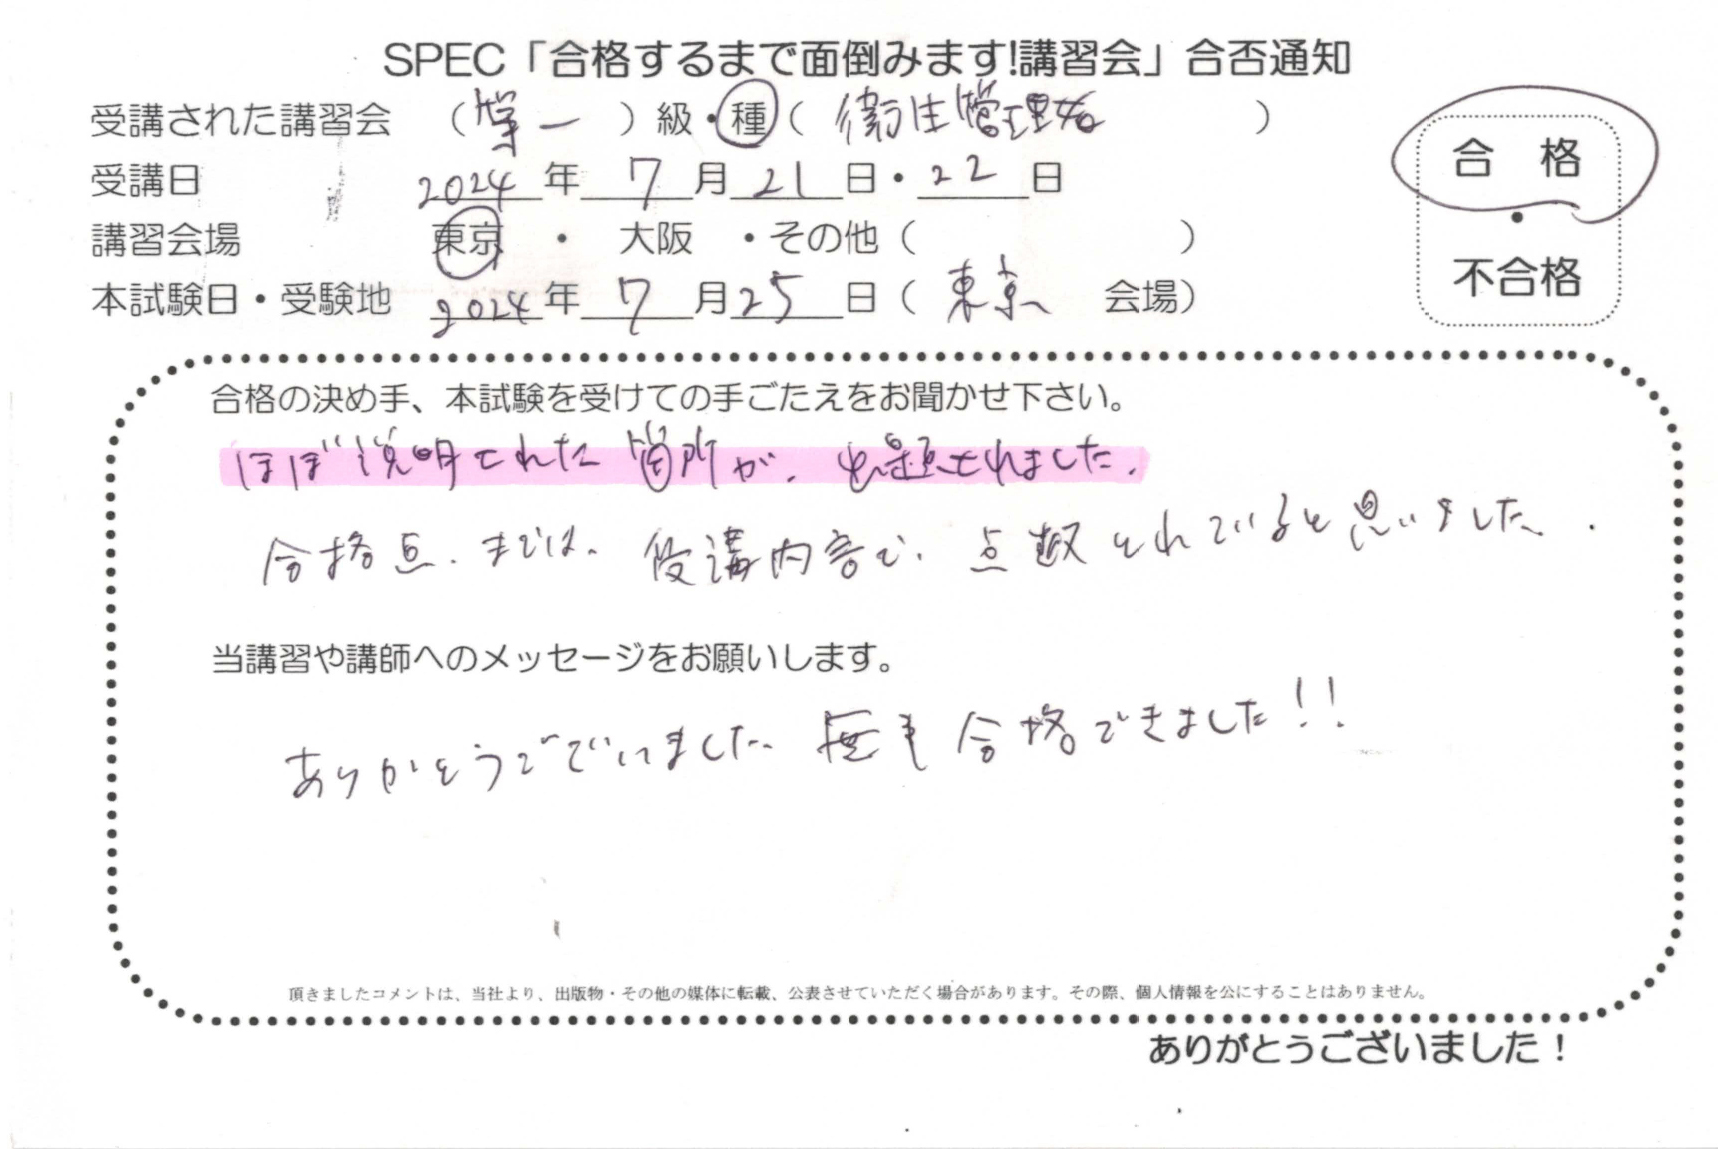 SPEC「合格するまで面倒みます!講習会」合否通知
受講された講習会 (第一) 級・種 (衛生管理者)
合 格
受講日 2024 年 7 月 21 日・22 日
・
講習会場 東京 ・ 大阪 ・その他 ( )
不合格
本試験日・受験地 2024 年 7 月 25 日 (東京 会場)
合格の決め手、本試験を受けての手ごたえをお聞かせ下さい。
ほぼ説明された箇所が、出題されました.
合格点.までは、受講内容で、点数とれていると思いました.
当講習や講師へのメッセージをお願いします。
ありがとうございました 無事合格できました!!
頂きましたコメントは、当社より、出版物・その他の媒体に転載、公表させていただく場合があります。その際、個人情報を公にすることはありません。
ありがとうございました!